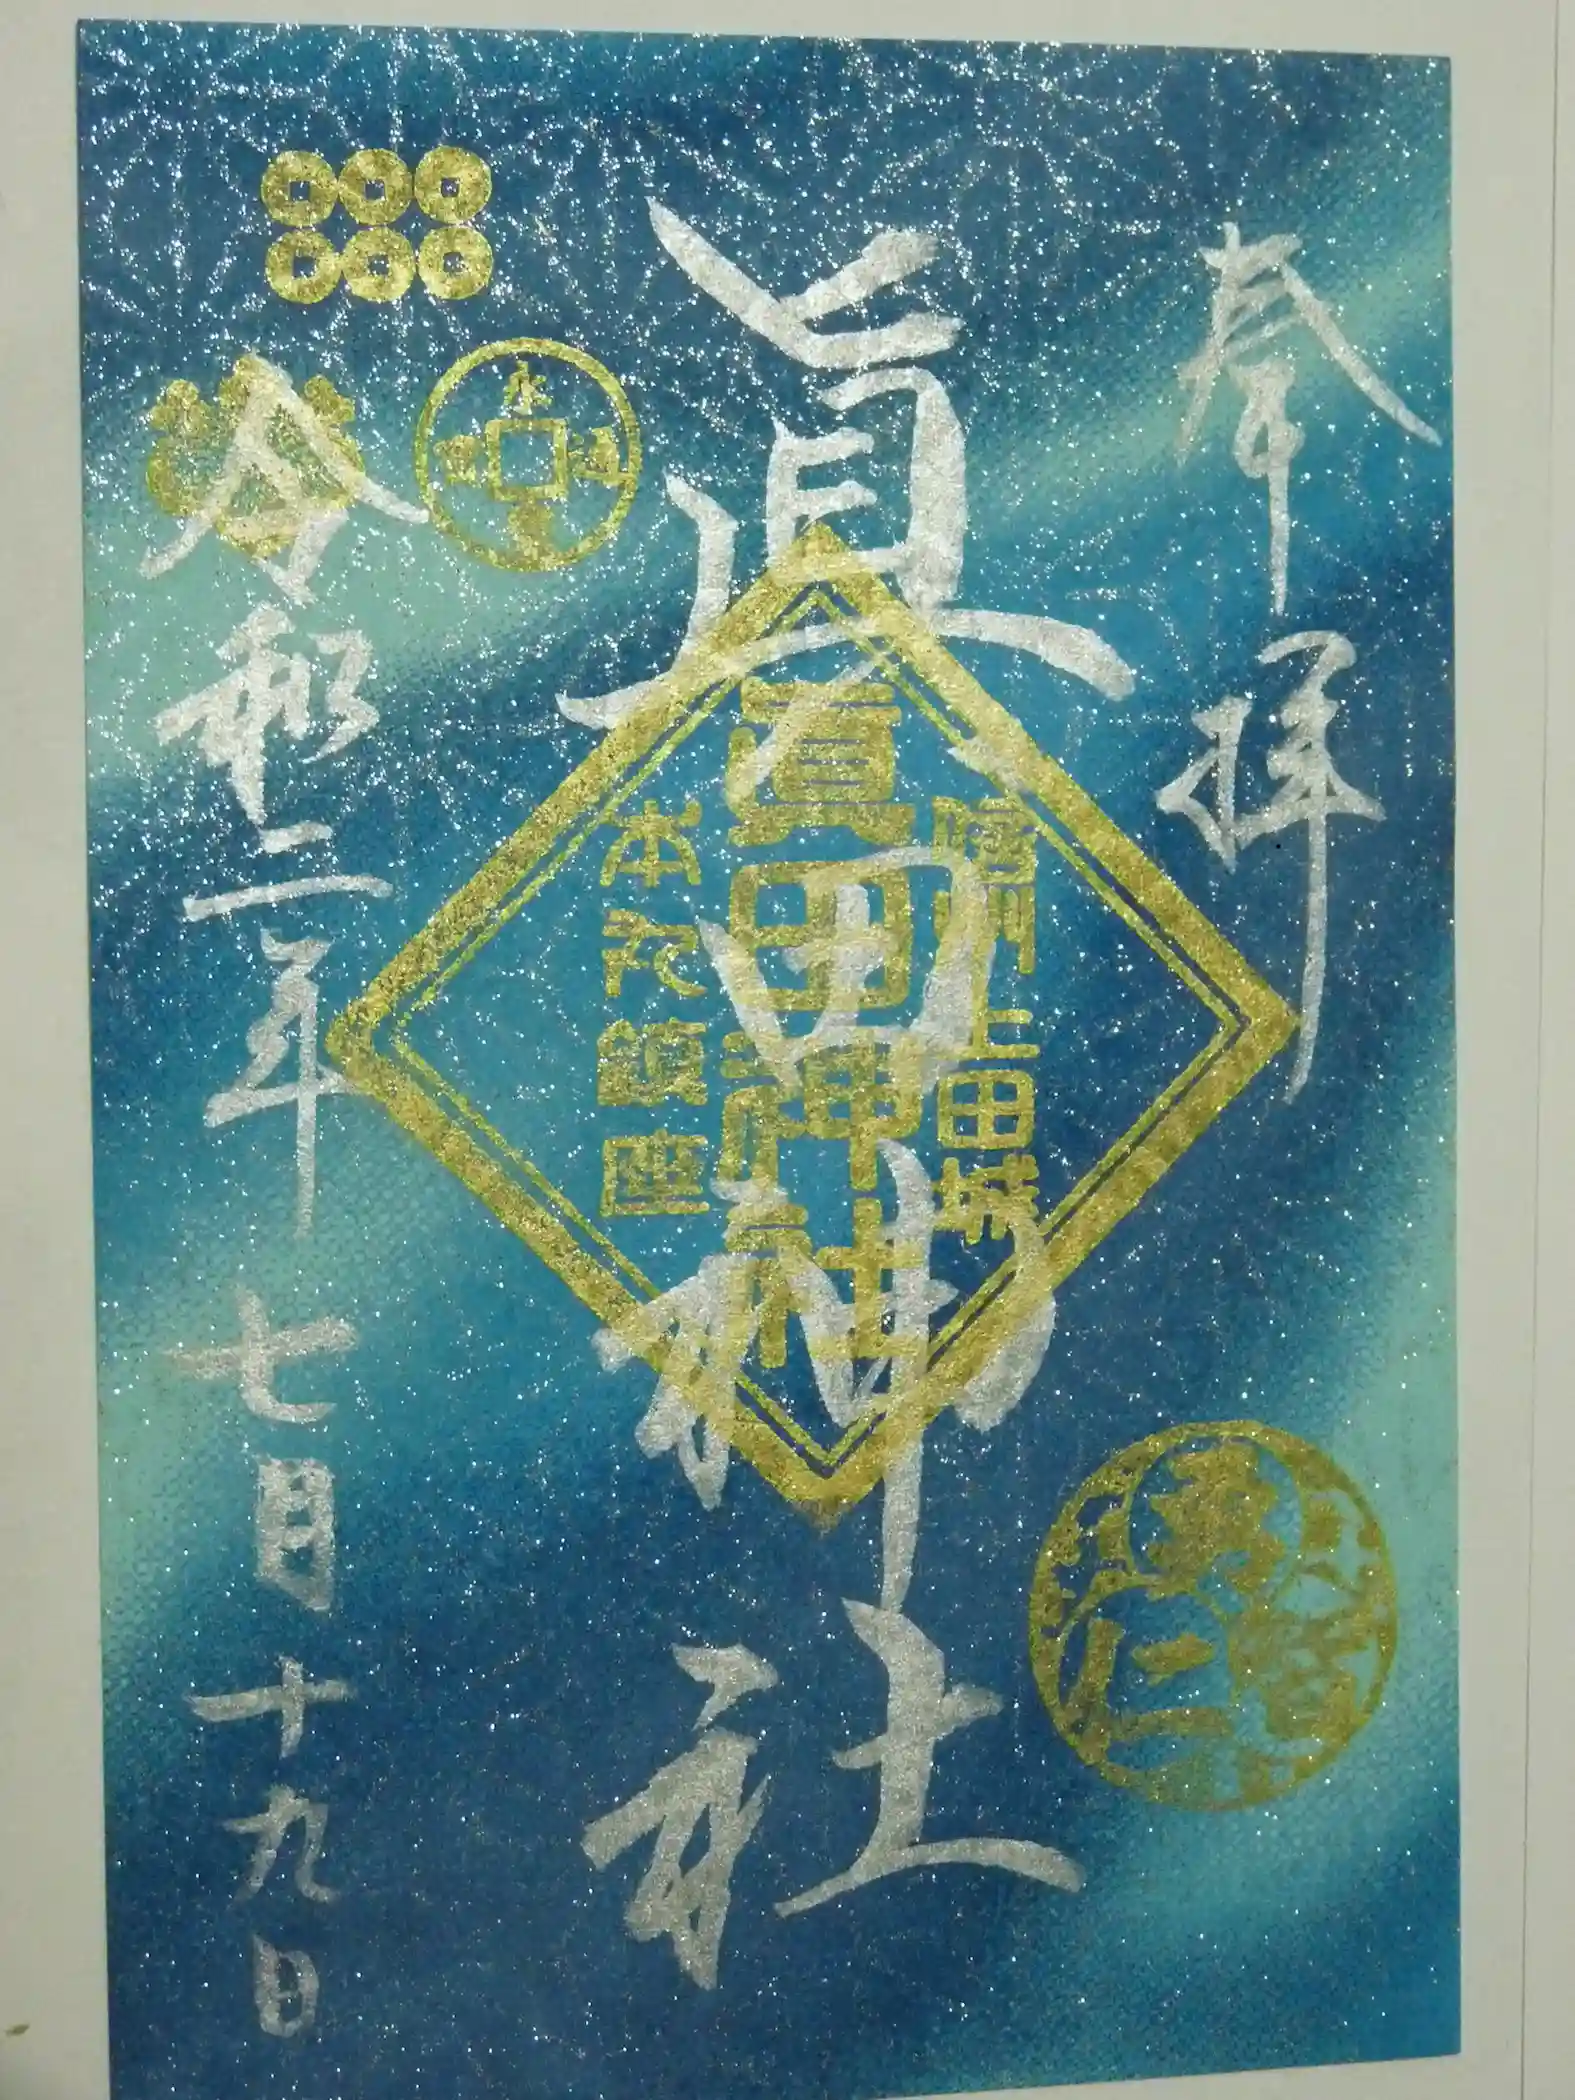 奉拝
眞田神社
信州上田城
眞田神社
本丸鎮座
令和二年七月十九日
永
通
勇
智
仁